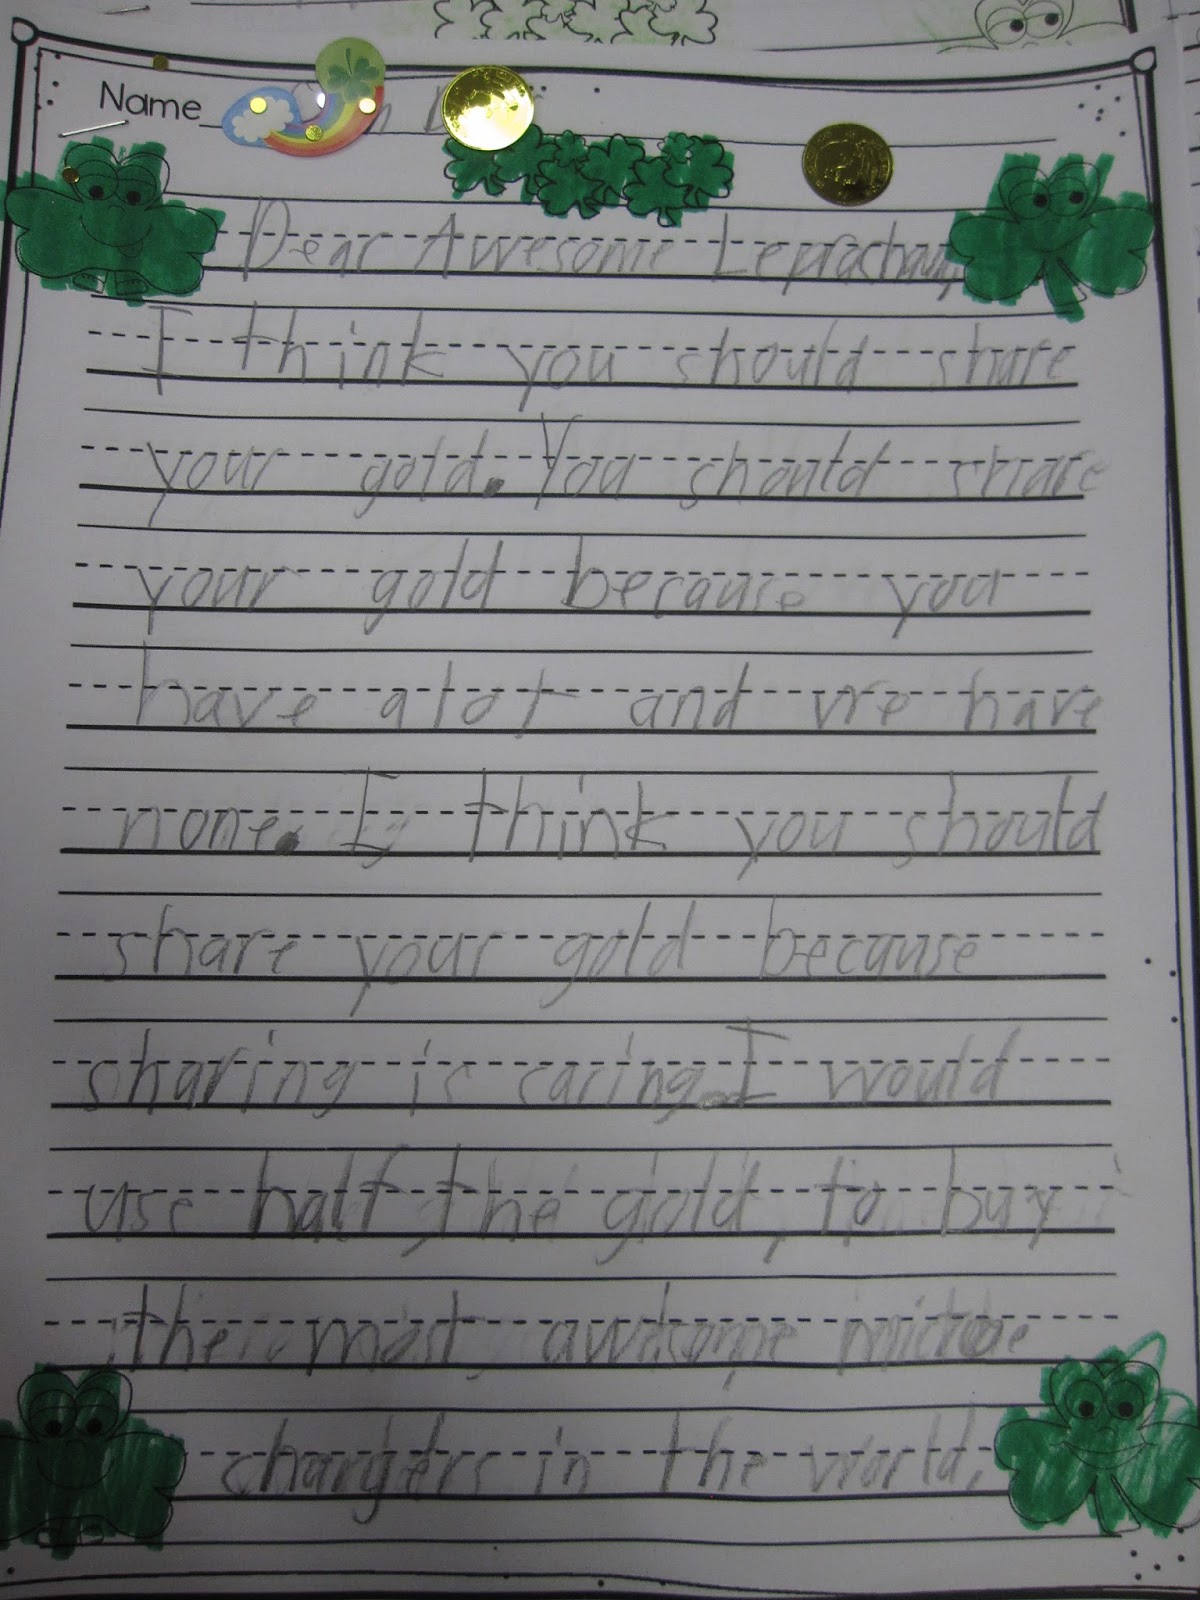 Name
Dear Awesome Leprachaun,
I think you should share
your gold. You should share
your gold because you
have alot and we have
none. I think you should
share your gold because
sharing is caring. I would
use half the gold, to buy
the most awesome
chargers in the world,